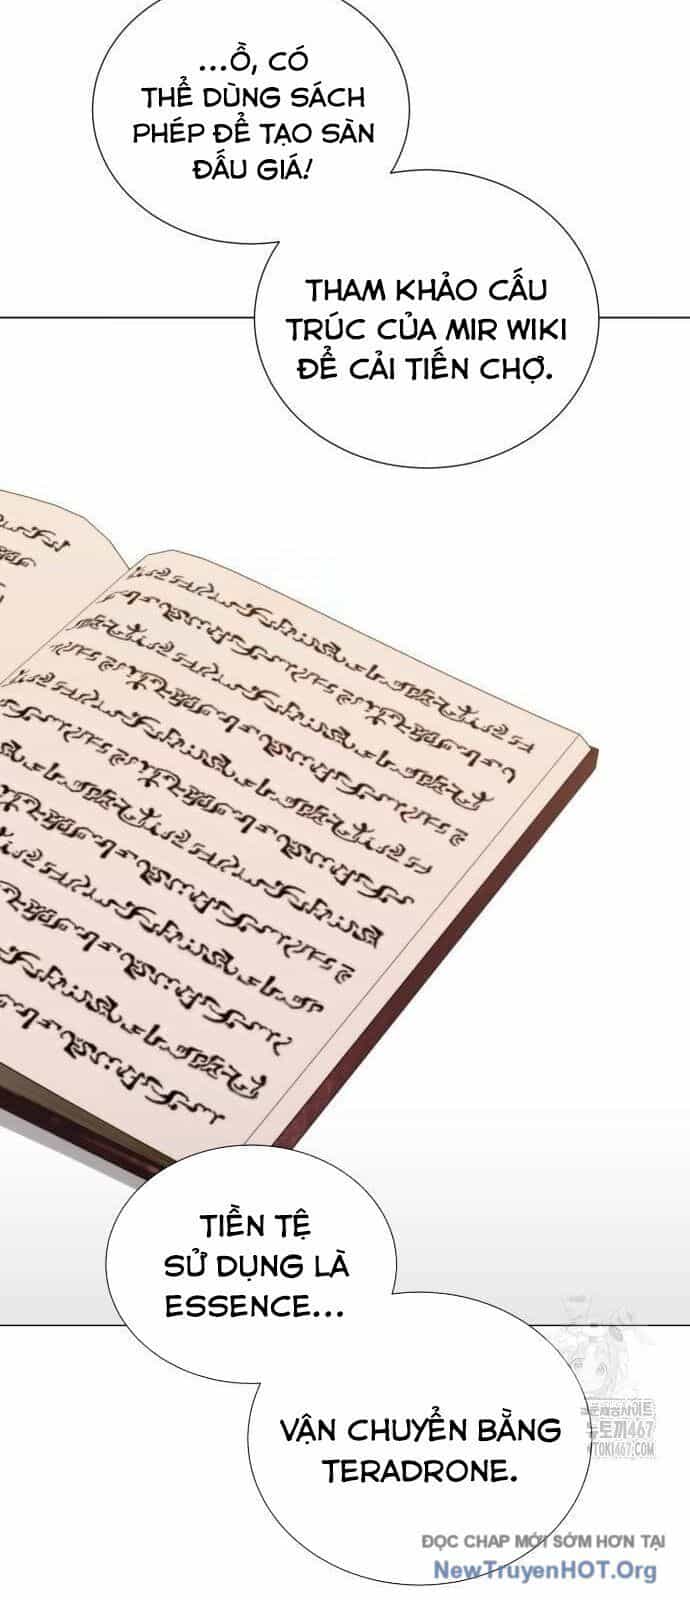 ...Ồ, CÓ
THỂ DÙNG SÁCH
PHÉP ĐỂ TẠO SÀN
ĐẤU GIÁ!
THAM KHẢO CẤU
TRÚC CỦA MIR WIKI
ĐỂ CẢI TIẾN CHỢ.
TIỀN TỆ
SỬ DỤNG LÀ
ESSENCE...
VẬN CHUYỂN BẰNG
TERADRONE.
뉴토끼467
NTOKI467.COM
ĐỌC CHAP MỚI SỚM HƠN TẠI
NewTruyenHOT.Org